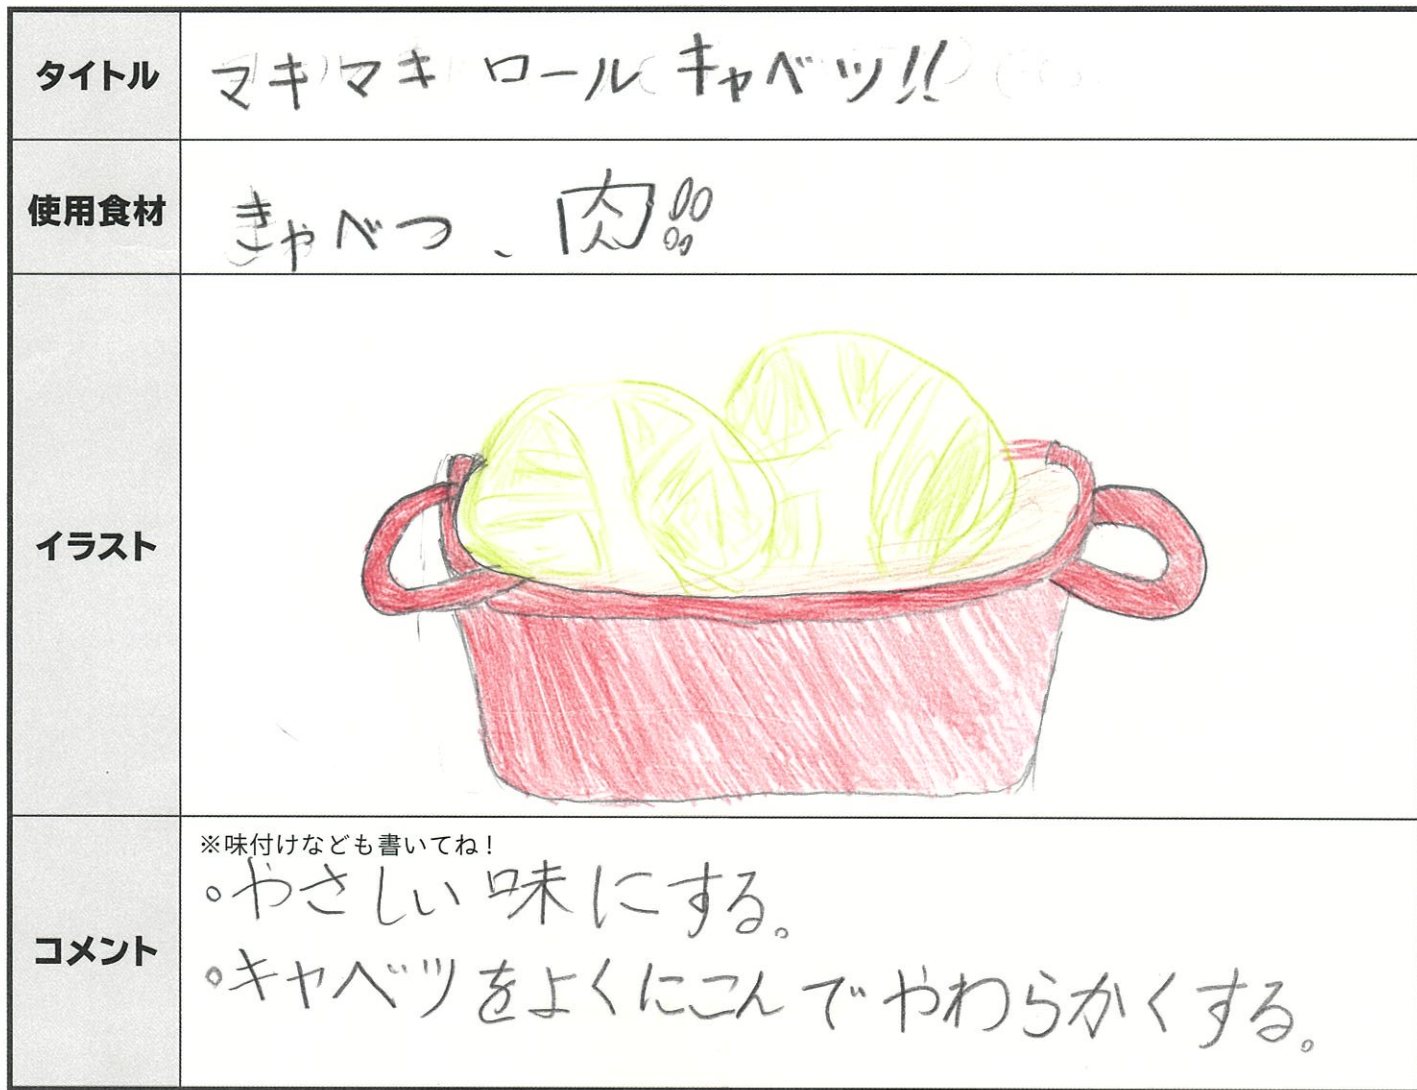 タイトル
マキマキ ロールキャベツ!!
使用食材
きゃべつ、肉!!
イラスト
コメント
※味付けなども書いてね！
。やさしい味にする。
。キャベツをよくにこんでやわらかくする。